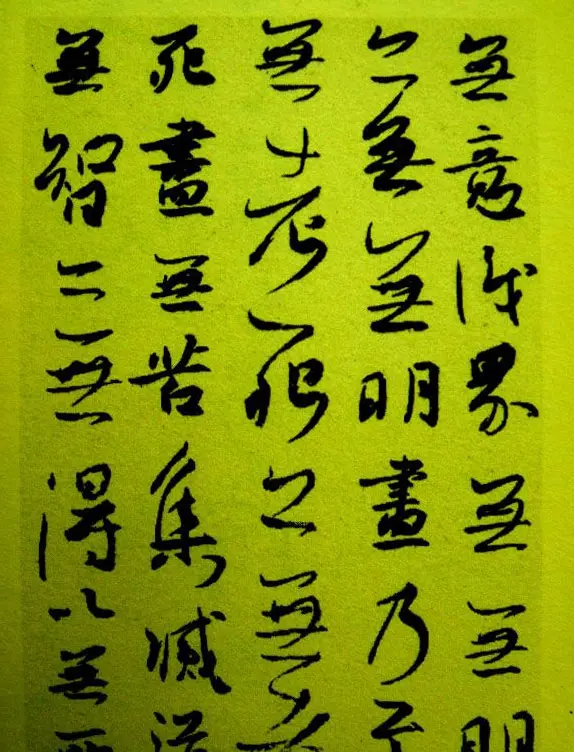 無意識界無無明
亦無無明盡乃至
無老死亦無老
死盡無苦集滅道
無智亦無得以無所